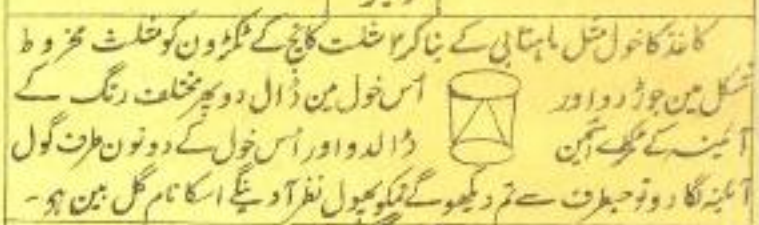 کاغذ کا خول مثل ماہتابی کے بنا کر ۲ مثلث کانچ کے ٹکڑون کو مثلث مخروط
شکل مین جوڑ دو اور اُس خول مین ڈال دو پھر مختلف رنگ کے
آئینہ کے ٹکڑے اسمین ڈالدو اور اُس خول کے دونون طرف گول
آئینہ لگا دو تو جسطرف سے تم دیکھو گے تمکو پھول نظر آوینگے اسکا نام گل بین ہو -